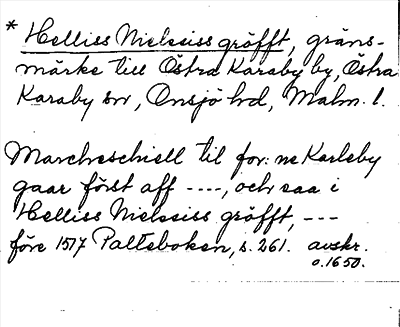 * Helliss Nielssiss gröfft, gräns-
märke till Östra Karaby by, Östra
Karaby sn, Onsjö hd, Malm. l.
Marcheschiell til for: ne Karleby
gaar först aff ----, och saa i
Helliss Nielssiss gröfft, ---
före 1517 Palteboken, s. 261. avskr.
o. 1650.